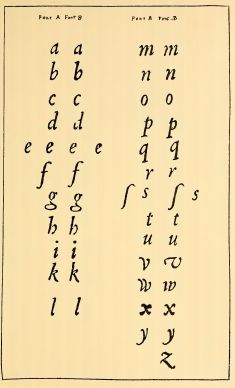 Font A Font B Font A Font B
a a m m
b b n n
c c o o
d d p p
e e e e q q
f f r r
g g ſ s ſ s
h h t t
i i u u
k k v v
l l w w
x x
y y
z